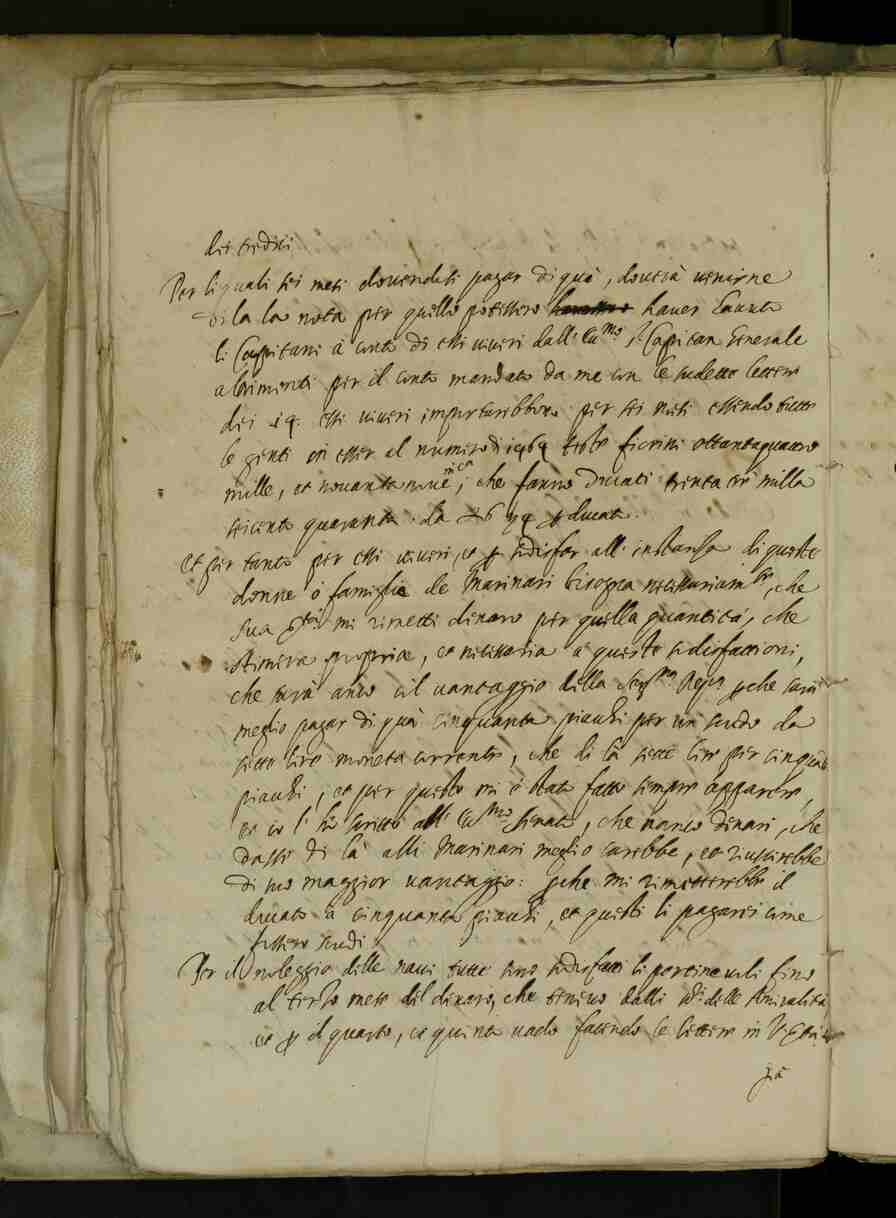 dei tredici
Per li quali sei mesi dovendosi pagar di quà, doverà venirne
di la la nota per quello potessero haver havuto
li Capitani à conto di essi viveri dall' Ill.mo S.r Capitan Generale
altrimenti per il conto mandato da me con le sudette lettere
dei essi viveri importarebbono per sei mesi essendo tutte
le genti in esser al numero di fiorini ottantaquatro
mille, et novanta nove, che fanno Ducati trenta tre milla
seicento quaranta da ducato.
et per tanto per essi viveri, et p sodisfar all' instanza di queste
donne ò famiglie de Marinari bisogna necessariam.te, che
Sua Ser.tà mi rimetti dinaro per quella quantità, che
stimerà propria, et necessaria à queste sodisfattioni,
che sarà anco il vantaggio della Ser.ma Rep.ca perche sarà
meglio pagar di quà cinquanta piachi per un scudo da
sette lire moneta corrente, che di là sette lire per cinquãta
piachi, et per questo mi è stato fatto sempre apparere,
et io l' hò scritto all' Ecc.mo Senato, che manco dinari, che
dassi di là alli Marinari meglio sarebbe, et riuscirebbe
di suo maggior vantaggio: perche mi rimetterebbe il
ducato à cinquanta piachi, et questi li pagarei come
fossero scudi
Per il noleggio delle navi tutti sono sodisfatti li partionevoli fino
al terzo mese del dinaro, che tenivo dalli delle Amiralità
et p il quarto, et quinto vado facendo le lettere in